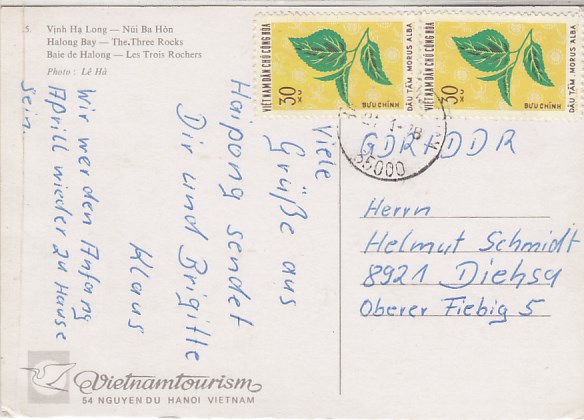 5. Vịnh Hạ Long — Núi Ba Hòn
Halong Bay — The Three Rocks
Baie de Halong — Les Trois Rochers
Photo : Lê Hà
VIỆT NAM DÂN CHỦ CỘNG HÒA
30 XU
BƯU CHÍNH
DÂU TẰM MORUS ALBA
VIỆT NAM DÂN CHỦ CỘNG HÒA
30 XU
BƯU CHÍNH
DÂU TẰM MORUS ALBA
35000
Viele
Grüße aus
Haipong sendet
Dir und Brigitte
Klaus
Wir werden Anfang
Aprill wieder zu Hause
sein.
GDR + DDR
Herrn
Helmut Schmidt
8921 Diehsa
Oberer Fiebig 5
Vietnamtourism
54 NGUYEN DU HANOI VIETNAM